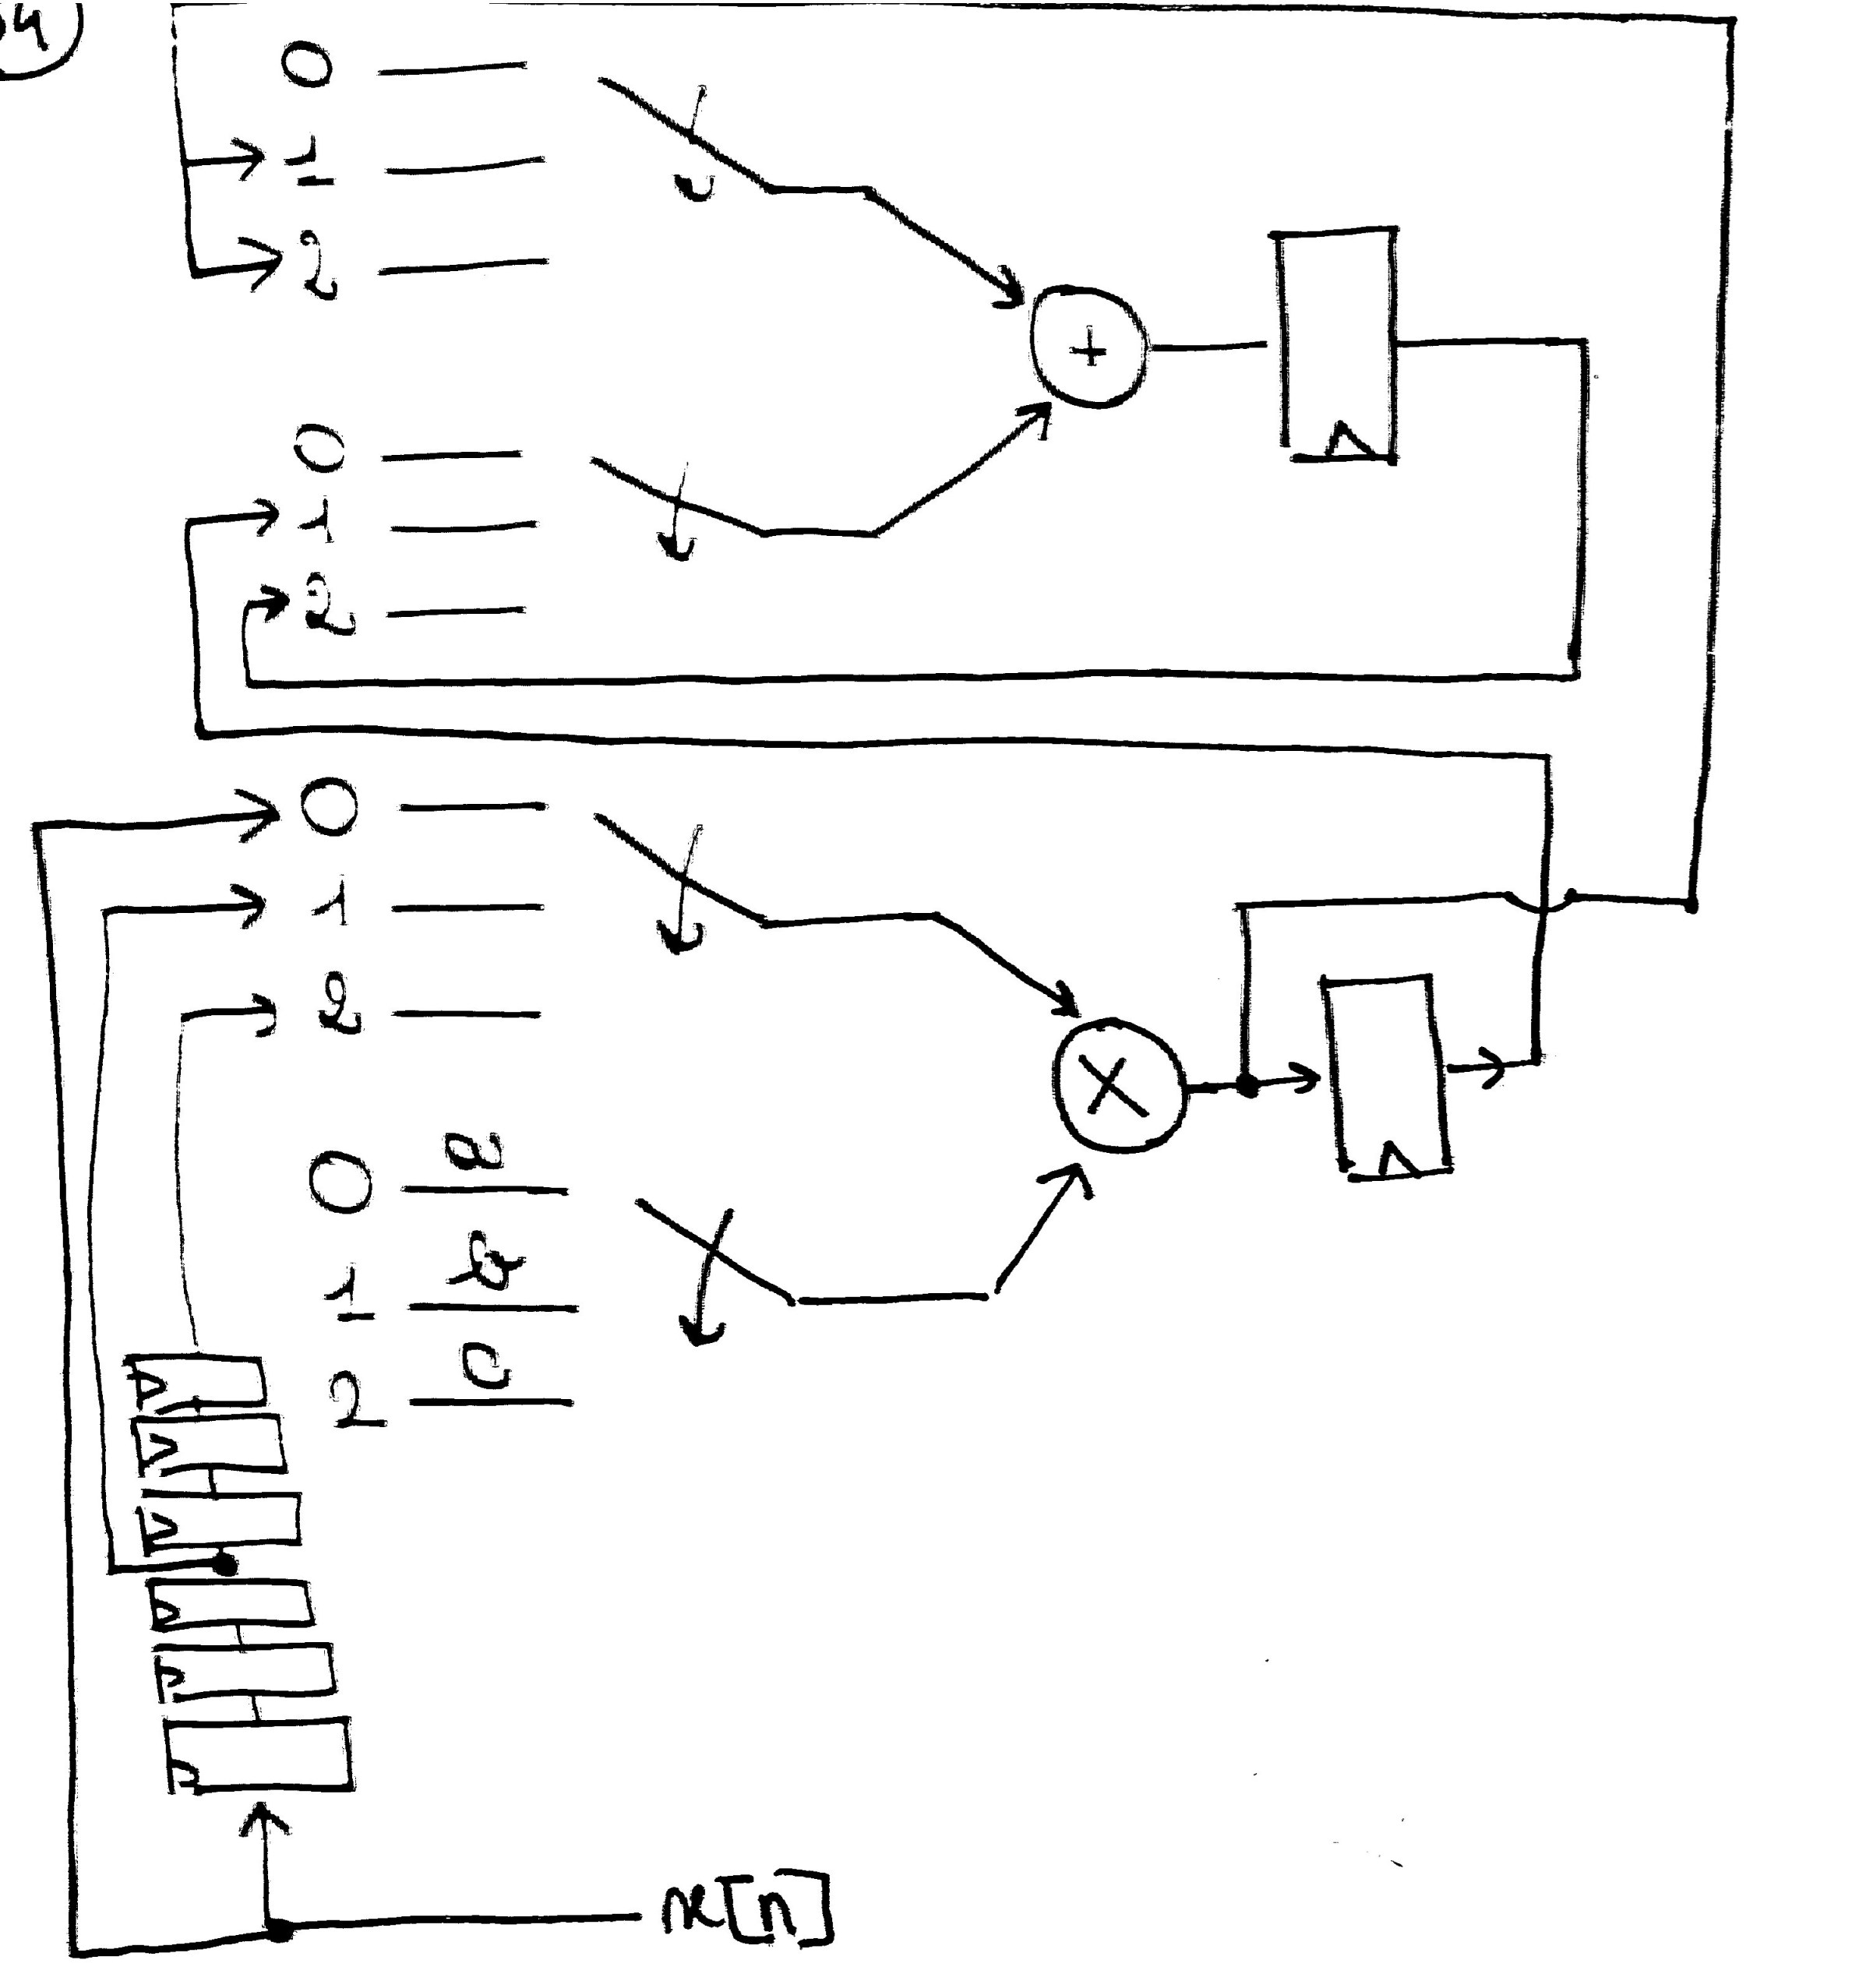 0
1
2
+
0
1
2
0
1
2
×
0 a
1 b
2 c
x[n]